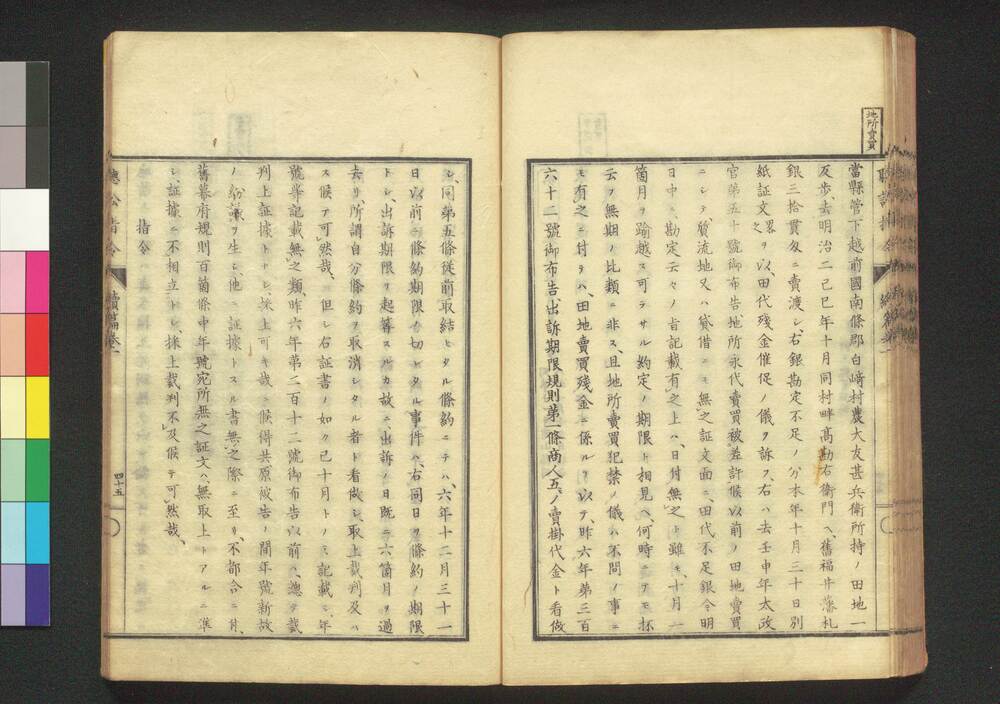 地所賣買
當縣管下越前國南條郡白﨑村農大友甚兵衞所持ノ田地一
反歩、去明治二己巳年十月同村畔髙勘右衞門ヘ、舊福井藩札
銀三拾貫匁ニ賣渡シ、右銀勘定不足ノ分本年十月三十日別
紙証文畧之ヲ以、田代残金催促ノ儀ヲ訴フ、右ハ去壬申年太政
官第五十號御布告、地所永代賣買被差許候以前ノ田地賣買
ニシテ、質流地又ハ貸借ニモ無之証文面ニ、田代不足銀令明
日中ニ勘定云々ノ旨記載有之上ハ、日付無之ト雖モ、十月一
箇月ヲ踰越ス可テサル約定ノ期限ト相見ヘ、何時ニテモ抔
云フ無期ノ比類ニ非ス、且地所賣買犯禁ノ儀ハ不問ノ事ニ
モ有之ニ付テハ、田地賣買残金ニ係ルヲ以テ、昨六年第三百
六十二號御布告、出訴期限規則第一條商人五ノ賣掛代金ト看做
シ、同第五條從前取結ヒタル條約ニテハ、六年十二月三十一
日以前ニ條約期限ノ切レタル事件ハ、右同日ヲ條約ノ期限
トシ、出訴期限ヲ起算スルカ故ニ、出訴ノ日既ニ六箇月ヲ過
去リ、所謂自分條約ヲ取消シタル者ト看做シ、取上裁判及ハ
ス候テ可然哉、但シ右証書ノ如ク已十月トノミ記載シ、年
號等記載無之類、昨六年第二百十二號御布告以前ハ、總テ裁
判上証據トナシ、採上可キ哉ニ候得共、原被告ノ間年號新故
ノ紛議ヲ生シ、他ニ証據トスル書無之際ニ至リ、不都合ニ付、
舊幕府規則百箇條中年號宛所無之証文ハ、無取上トアルニ準
シ、証據ニ不相立トシ、採上裁判不及候テ可然哉、
指令
續編卷一
四十五